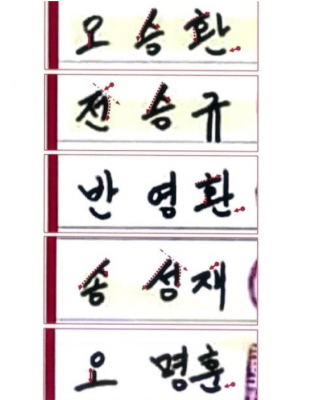 오승환
전승규
반영환
송성재
오명훈